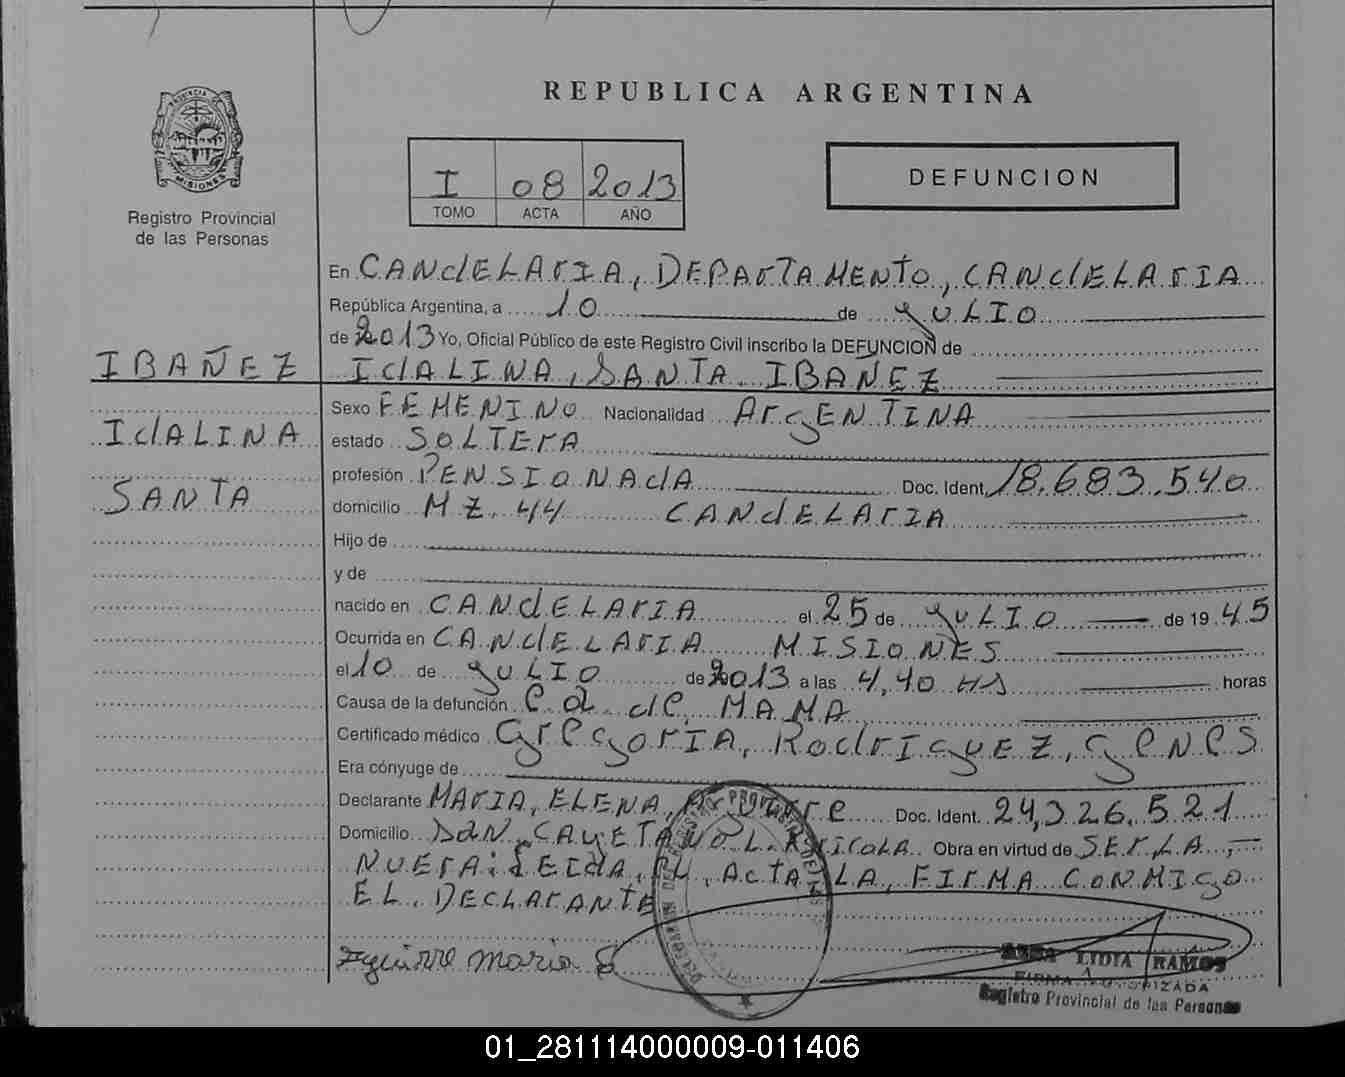 REPUBLICA ARGENTINA
PROVINCIA DE
MISIONES
Registro Provincial
de las Personas
I 08 2013
TOMO ACTA AÑO
DEFUNCION
En CANdELArIA, DEPArTAMENTO, CANdELArIA
República Argentina, a 10 de JULIO
de 2013 Yo, Oficial Público de este Registro Civil inscribo la DEFUNCION de
IBAÑEZ
IdALINA, SANTA IBAÑEZ
Sexo FEMENINO Nacionalidad ArgENTINA
IdALINA
estado SOLTErA
profesión PENSIONAdA Doc. Ident. 18.683.540
SANTA
domicilio MZ. 44 CANdELArIA
Hijo de
y de
nacido en CANdELArIA el 25 de JULIO de 19 45
Ocurrida en CANdELArIA MISIONES
el 10 de JULIO de 2013 a las 4,40 HS horas
Causa de la defunción Ca de MAMA
Certificado médico GregorIA, RodrIguEZ, geNes
Era cónyuge de
Declarante MArIA, ELENA, Doc. Ident. 24,326.521
Domicilio SAN, CAYETANO L. Obra en virtud de SEr, LA
LA, FIrMA CONMIgO
EL, DECLArANTE
Aguirre maria E
LIDIA RAMOS
FIRMA AUTORIZADA
Registro Provincial de las Personas
01_281114000009-011406